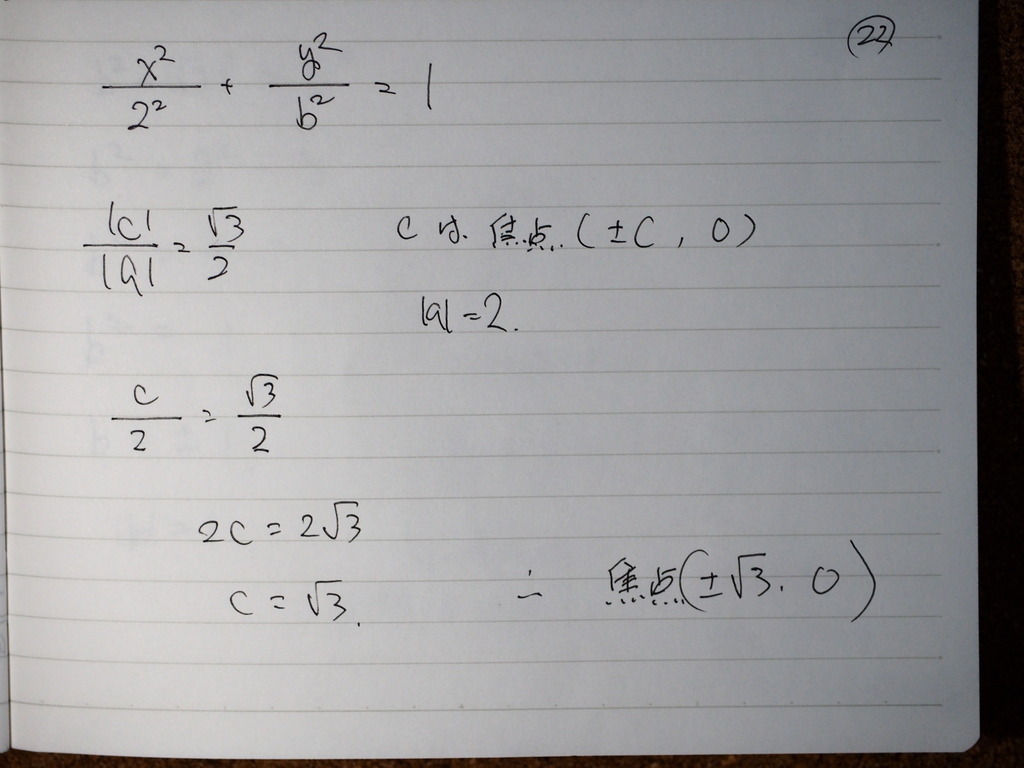 ㉒
x²/2² + y²/b² = 1
|c|/|a| = √3/2 cは焦点(±c, 0)
|a| = 2.
c/2 = √3/2
2c = 2√3
c = √3. ∴ 焦点(±√3, 0)